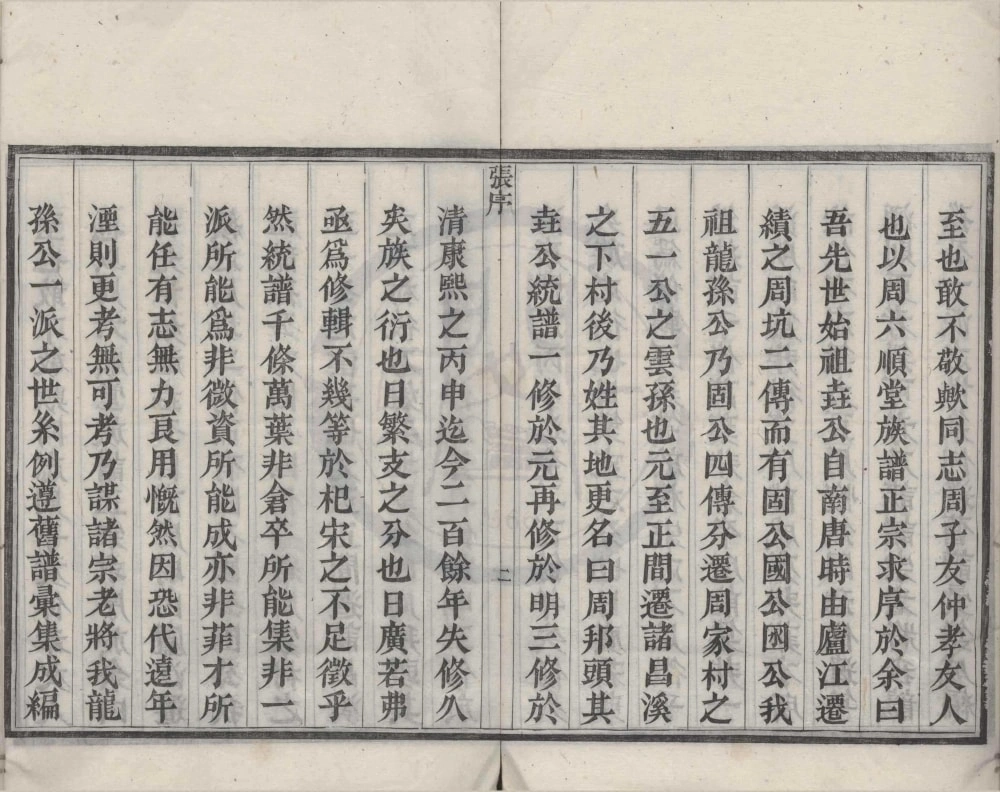 至也敢不敬歟同志周子友仲孝友人
也以周六順堂族譜正宗求序於余曰
吾先世始祖垚公自南唐時由廬江遷
績之周坑二傳而有固公國公囦公我
祖龍孫公乃固公四傳分遷周家村之
五一公之雲孫也元至正間遷諸昌溪
之下村後乃姓其地更名曰周邦頭其
垚公統譜一修於元再修於明三修於
張序
二
清康熙之丙申迄今二百餘年失修久
矣族之衍也日繁支之分也日廣若弗
亟爲修輯不幾等於杞宋之不足徵乎
然統譜千條萬葉非倉卒所能集非一
派所能爲非徵資所能成亦非菲才所
能任有志無力良用慨然因恐代遠年
湮則更考無可考乃謀諸宗老將我龍
孫公一派之世系例遵舊譜彙集成編